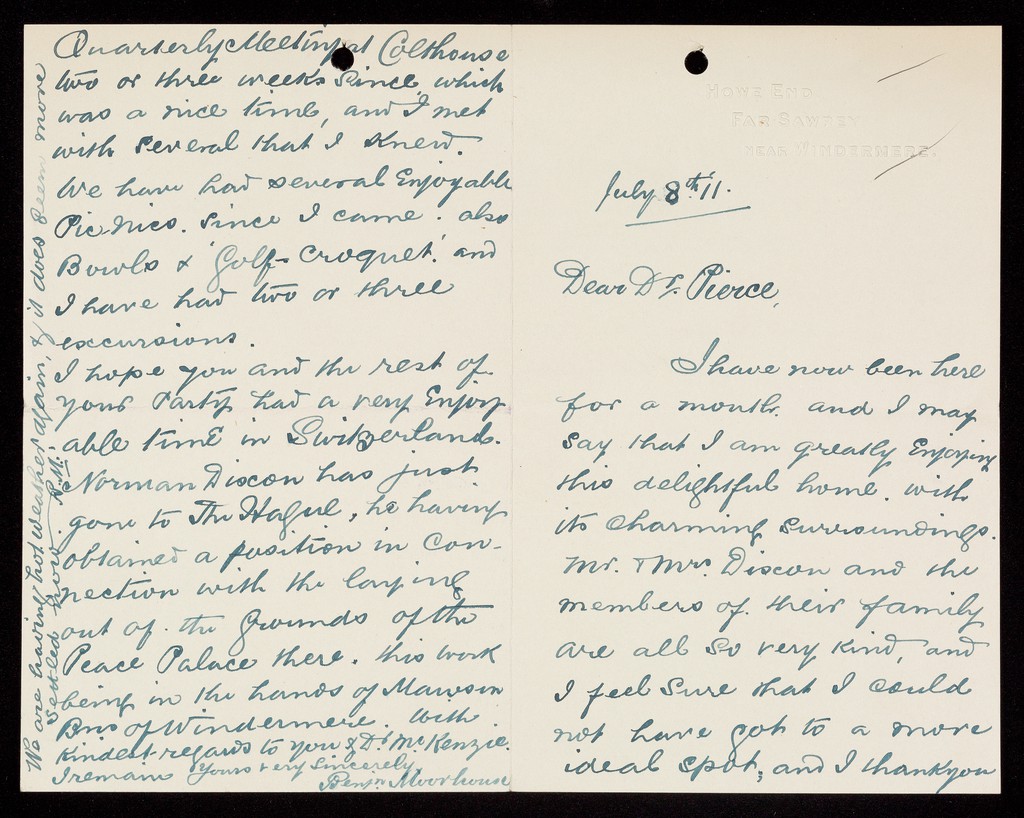 HOWE END
FAR SAWREY
NEAR WINDERMERE.
July 8th '11.
Dear Dr. Pierce,
I have now been here
for a month. and I may
say that I am greatly Enjoying
this delightful home. with
its Charming Surroundings.
Mr. & Mrs. Dixon and the
members of their family
are all so very kind, and
I feel Sure that I could
not have got to a more
ideal spot, and I thank you
Quarterly Meeting at Colthouse
two or three weeks since, which
was a nice time, and I met
with several that I knew.
We have had several Enjoyable
Pic Nics. since I came. also
Bowls & 'Golf-Croquet.' and
I have had two or three
excursions.
I hope you and the rest of
your Party had a very Enjoy
able time in Switzerland.
Norman Dixon has just
gone to The Hague, he having
obtained a position in Con-
nection with the laying
out of the Grounds of the
Peace Palace there. this work
being in the hands of Mawson
Bros of Windermere. With
Kindest regards to you & Dr McKenzie.
I remain Yours very Sincerely,
Benjn Moorhouse
We are having hot weather again, & it does seem more
settled now. B.M.